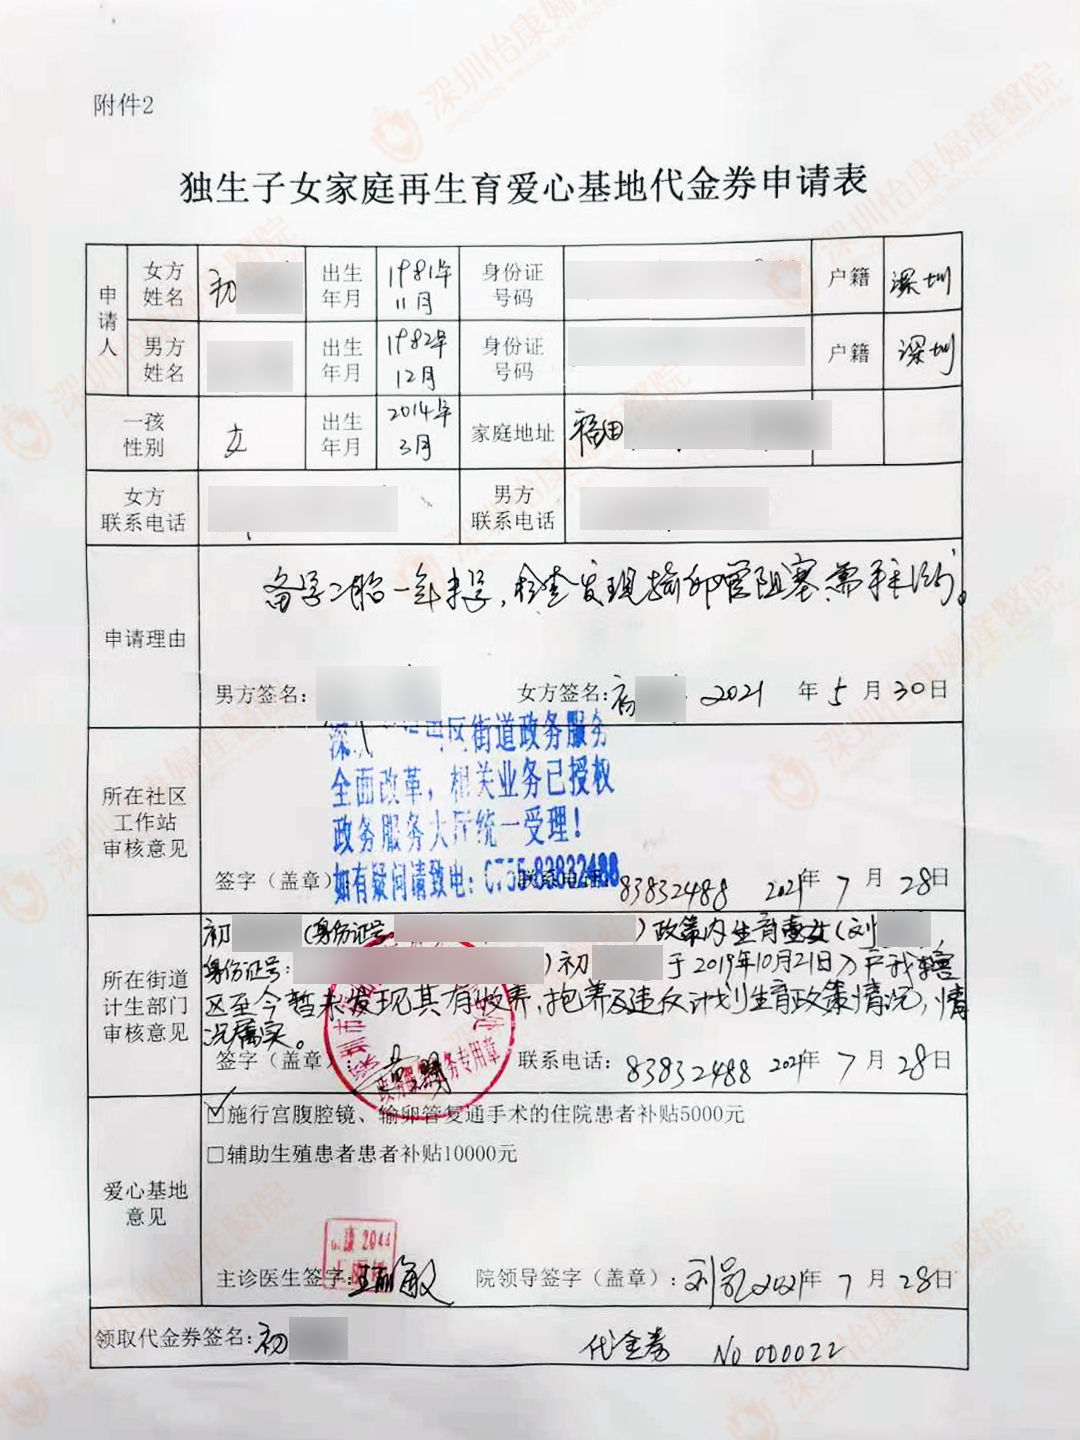 附件2
独生子女家庭再生育爱心基地代金券申请表
申请人
女方姓名 初 出生年月 1981年11月 身份证号码 户籍 深圳
男方姓名 出生年月 1982年12月 身份证号码 户籍 深圳
一孩性别 女 出生年月 2014年3月 家庭地址 福田
女方联系电话 男方联系电话
申请理由
备孕二胎一年半, 检查发现输卵管阻塞, 需手术治疗。
男方签名: 女方签名: 初 2021 年 5 月 30 日
所在社区工作站审核意见
区街道政务服务
全面改革，相关业务已授权
政务服务大厅统一受理！
如有疑问请致电：0755-83832488
签字（盖章） 83832488 2021年 7 月 28日
所在街道计生部门审核意见
初 (身份证号: ) 政策内生育壹女(刘
身份证号: ) 初 于2019年10月21日入户我辖
区至今暂未发现其有收养、抱养及违反计划生育政策情况, 情
况属实。
签字（盖章） 联系电话: 83832488 2021年 7 月 28日
政务服务业务专用章
爱心基地意见
☑施行宫腹腔镜、输卵管复通手术的住院患者补贴5000元
□辅助生殖患者患者补贴10000元
主诊医生签字: 院领导签字（盖章）: 2021年 7 月 28日
领取代金券签名: 初 代金券 No 000022
深圳怡康婦産醫院